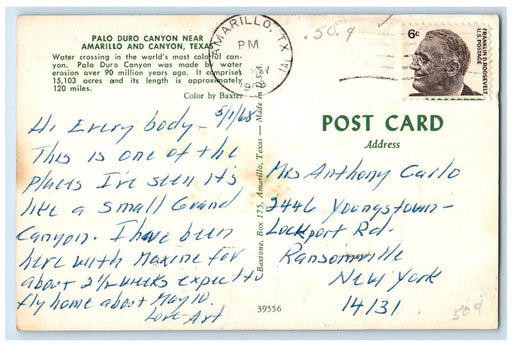 PALO DURO CANYON NEAR
AMARILLO AND CANYON, TEXAS
Water crossing in the world's most colorful can-
yon. Palo Duro Canyon was made by water
erosion over 90 million years ago. It comprises
15,103 acres and its length is approximately
120 miles.
Color by Baxter
5/1/68
Hi Every body -
This is one of the
places I've seen it's
like a Small Grand
Canyon. I have been
here with Maxine for
about 2 1/2 weeks expect to
fly home about May 10.
Love - Art
Baxtone, Box 175, Amarillo, Texas — Made in
39556
AMARILLO, TX
PM
.50¢
6c
FRANKLIN D. ROOSEVELT
U.S. POSTAGE
POST CARD
Address
Mrs Anthony Carlo
2446 Youngstown-
Lockport Rd.
Ransomville
New York
14131
50¢